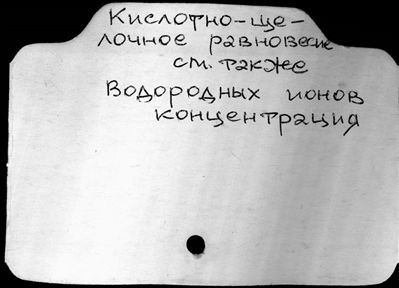 Кислотно-ще-
лочное равновесие
см. также
Водородных ионов
концентрация